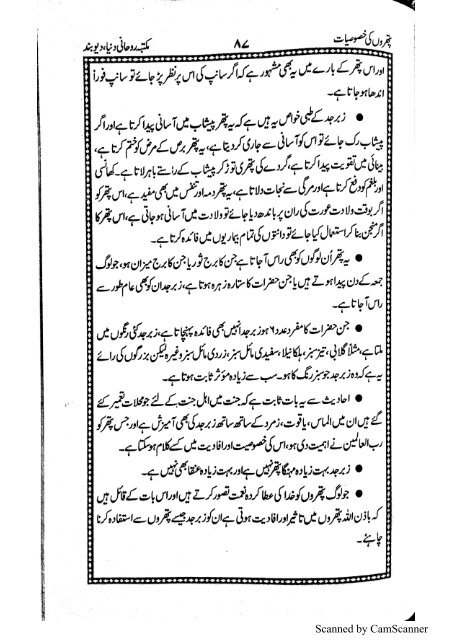 پتھروں کی خصوصیات ۸۷ مکتبہ روحانی دنیا، دیوبند
اور اس پتھر کے بارے میں یہ بھی مشہور ہے کہ اگر سانپ کی اس پر نظر پڑ جائے تو سانپ فوراً
اندھا ہوجاتا ہے۔
● زبرجد کے طبی خواص یہ ہیں ہے کہ یہ پتھر پیشاب میں آسانی پیدا کرتا ہے اور اگر
پیشاب رک جائے تو اس کو آسانی سے جاری کردیتا ہے، یہ پتھر برص کے مرض کو ختم کرتا ہے،
بینائی میں تقویت پیدا کرتا ہے، گردے کی پتھری توڑ کر پیشاب کے راستے باہر لاتا ہے۔ کھانسی
اور بلغم کو دفع کرتا ہے اور مرگی سے نجات دلاتا ہے، یہ پتھر دمہ اور تنفس میں بھی مفید ہے، اس پتھر کو
اگر بوقت ولادت عورت کی ران پر باندھ دیا جائے تو ولادت میں آسانی ہوجاتی ہے، اس پتھر کا
اگر منجن بنا کر استعمال کیا جائے تو دانتوں کی تمام بیماریوں میں فائدہ کرتا ہے۔
● یہ پتھر اُن لوگوں کو بھی راس آجاتا ہے جن کا برج ثور یا جن کا برج میزان ہو، جو لوگ
جمعہ کے دن پیدا ہوتے ہیں یا جن حضرات کا ستارہ زہرہ ہوتا ہے، زبرجد ان کو بھی عام طور سے
راس آجاتا ہے۔
● جن حضرات کا مفرد عدد ۶ ہو زبرجد انہیں بھی فائدہ پہنچاتا ہے، زبرجد کئی رنگوں میں
ملتا ہے، مثلاً گلابی، تیز سبز، ہلکا نیلا، سفیدی مائل سبز، زردی مائل سبز وغیرہ لیکن بزرگوں کی رائے
یہ ہے کہ وہ زبرجد جو سبز رنگ کا ہو۔ سب سے زیادہ مؤثر ثابت ہوتا ہے۔
● احادیث سے یہ بات ثابت ہے کہ جنت میں اہل جنت کے لئے جو محلات تعمیر کئے
گئے ہیں ان میں الماس، یاقوت، زمرد کے ساتھ ساتھ زبرجد کی بھی آمیزش ہے اور جس پتھر کو
رب العالمین نے اہمیت دی ہو، اس کی خصوصیت اور افادیت میں کسے کلام ہوسکتا ہے۔
● زبرجد بہت زیادہ مہنگا پتھر نہیں ہے اور بہت زیادہ عنقا بھی نہیں ہے۔
● جو لوگ پتھروں کو خدا کی عطا کردہ نعمت تصور کرتے ہیں اور اس بات کے قائل ہیں
کہ باذن اللہ پتھروں میں تاثیر اور افادیت ہوتی ہے ان کو زبرجد جیسے پتھروں سے استفادہ کرنا
چاہئے۔
Scanned by CamScanner